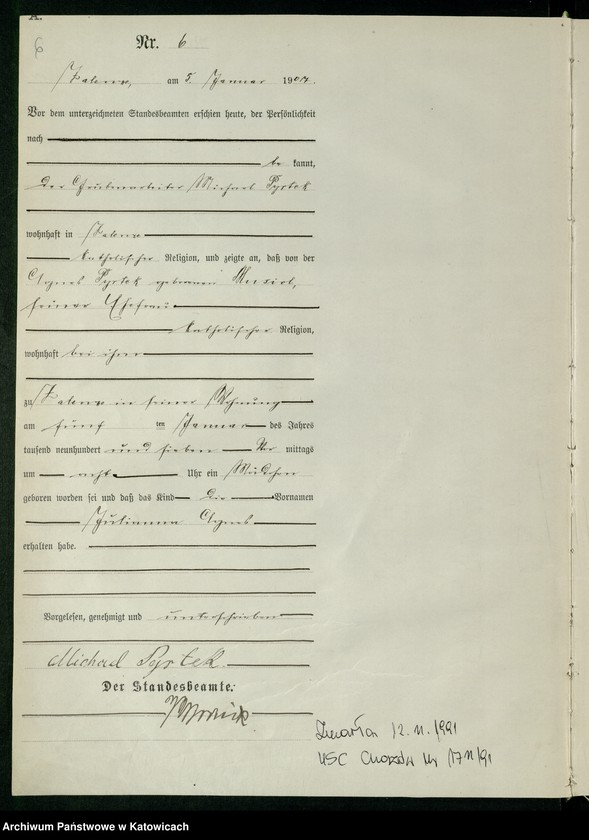 A.
6
Nr. 6
Zalenze, am 5. Januar 1907.
Vor dem unterzeichneten Standesbeamten erschien heute, der Persönlichkeit
nach
be kannt,
der Grubenarbeiter Michael Pyrtek
wohnhaft in Zalenze
katholischer Religion, und zeigte an, daß von der
Agnes Pyrtek geborenen Musiol,
seiner Ehefrau
katholischer Religion,
wohnhaft bei ihm
zu Zalenze in seiner Wohnung
am fünf ten Januar des Jahres
tausend neunhundert und sieben Vor mittags
um acht Uhr ein Mädchen
geboren worden sei und daß das Kind die Vornamen
Julianna Agnes
erhalten habe.
Vorgelesen, genehmigt und unterschrieben
Michael Pyrtek
Der Standesbeamte.
12.11.1991
USC Chorzów Nr
Archiwum Państwowe w Katowicach